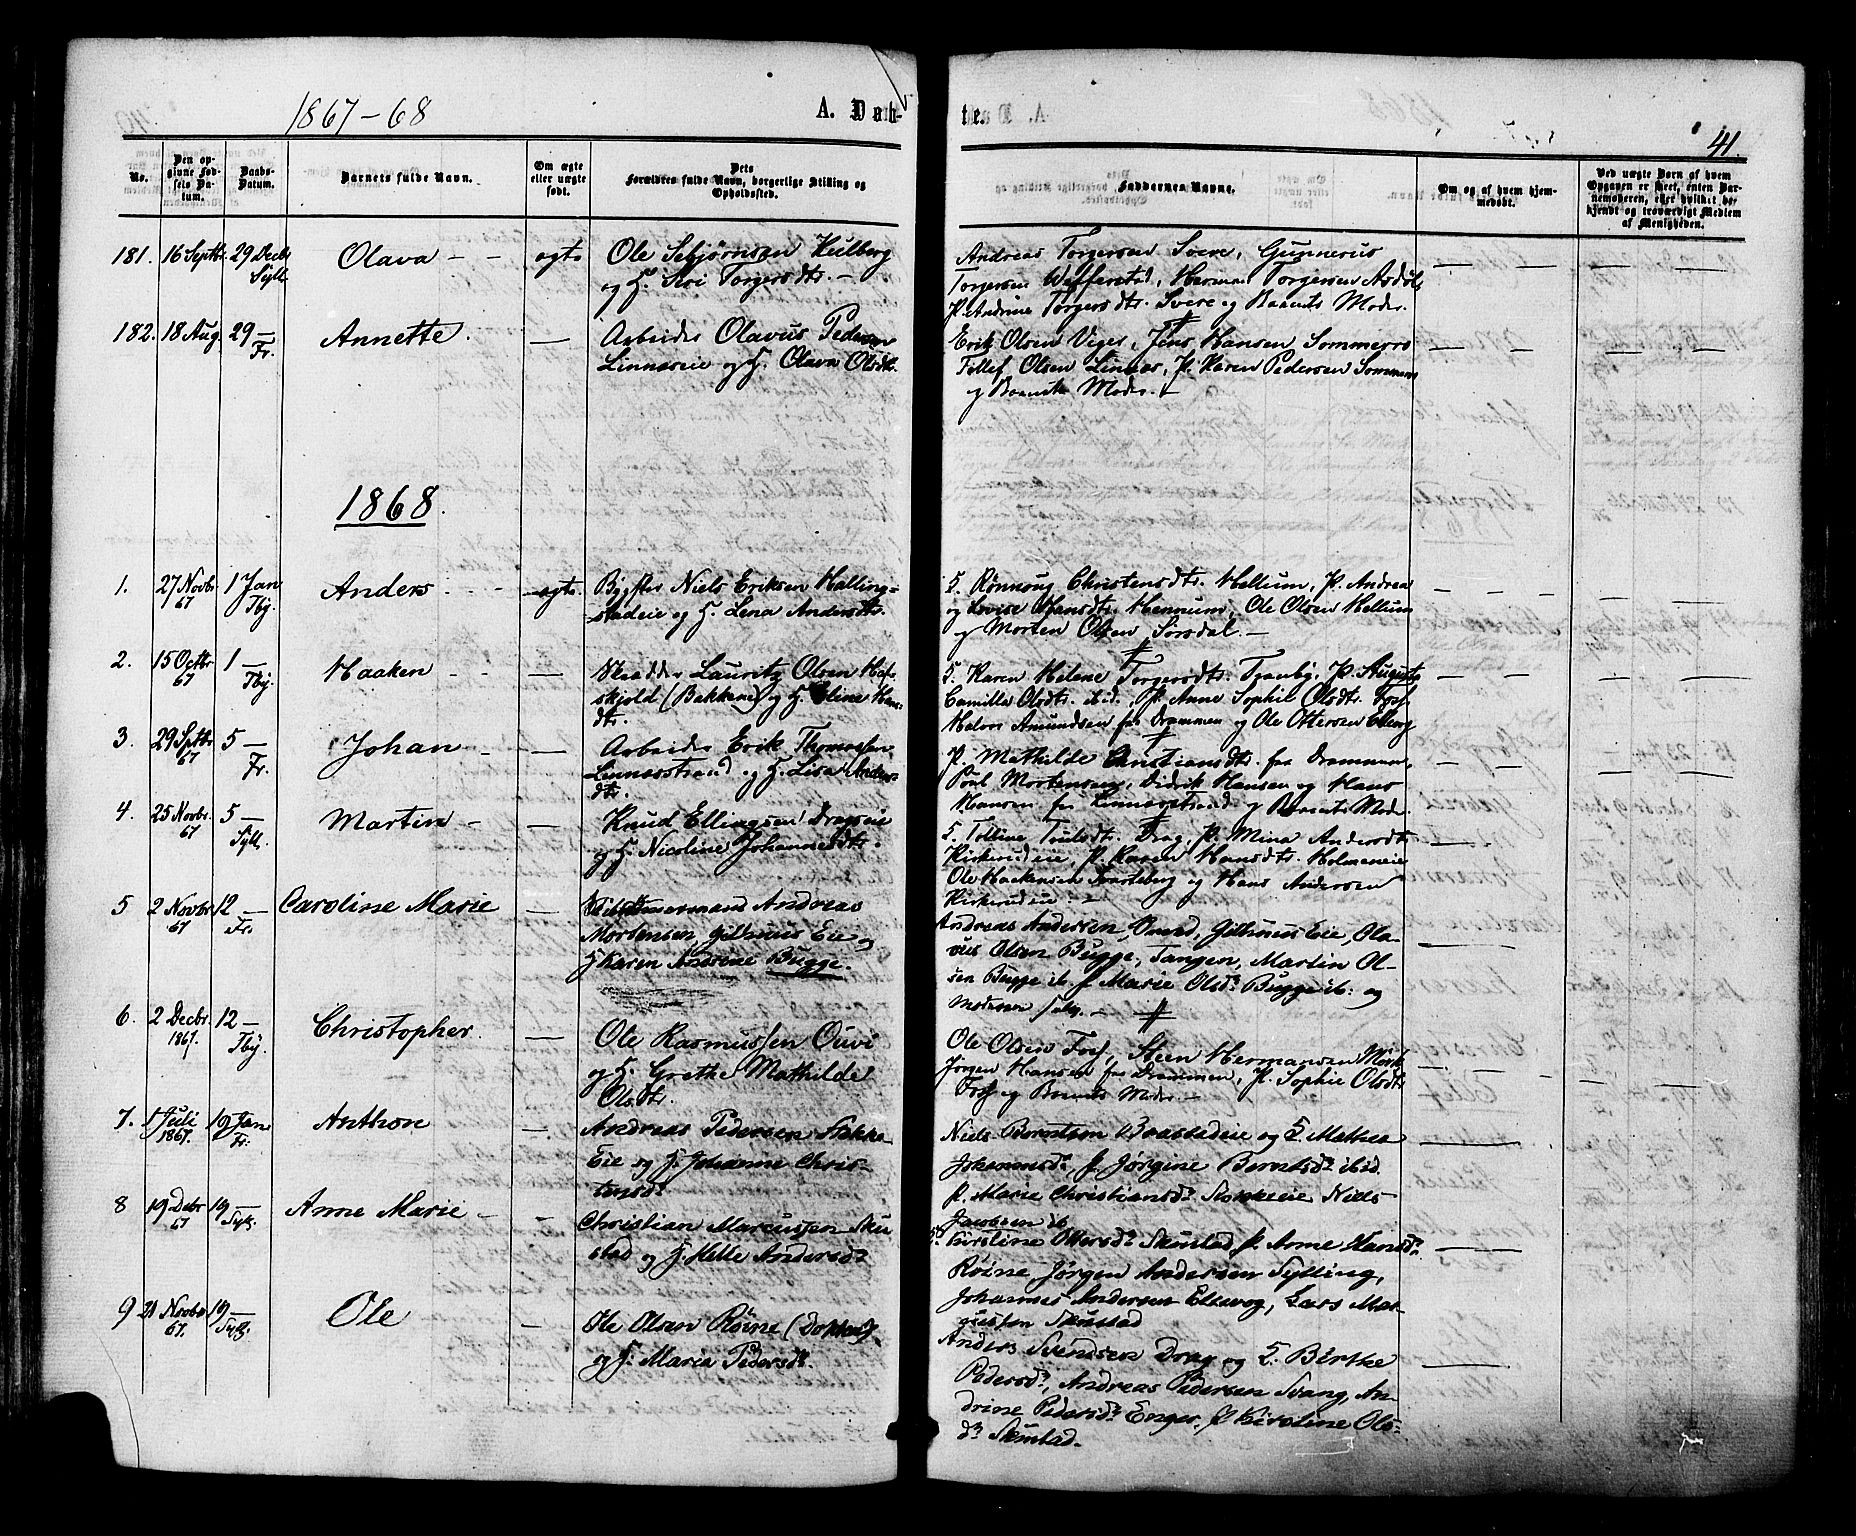 1867-68
A. Døb-
te.
41.
No.
Den op-
givne Fød-
sels Da-
tum.
Daabs-
Datum.
Barnets fulde Navn.
Om ægte
eller uægte
født.
Dets
Forældres fulde Navn, borgerlige Stilling og
Opholdssted.
Faddernes Navne.
Om og af hvem hjem-
medøbt.
Ved uægte Born af hvem
Opgaven er skeet, enten Bar-
nemoderen, eller hvilket be-
kjendt og troværdigt Medlem
af Menigheden.
181. 16 Septbr. 29 Decbr Sylli. Olava - - ægte
Ole Sebjørnsen Kulberg
og H. Siri Torgersdtr. -
Andreas Torgersen Svere, Gunnerus
Torgersen, Herman Torgersen
P. Andrine Torgersdtr. Svere og Barnets Moder.
182. 18 Aug. 29 - Fr. Annette. -
Arbeider Olavus Pedersen
Linnæseie og H. Olava Olsdtr.
Erik Olsen Viger, Jens Hansen Sommerro
Tollef Olsen Linnæs, P. Karen Pedersen
og Barnets Moder.
1868.
1. 27 Novbr. 67 1 Jan Tby. Anders - - - ægte.
Bygsler Niels Eriksen Halling-
stadeie og H. Lena Andersdtr.
G. Rønnoug Christensdtr. Hellum, P. Andrea
og Lovise Hansdtr. Hennum, Ole Olsen Hellum
og Morten Olsen Sørsdal. -
2. 15 Octbr 67 1 - Tby. Haaken - - -
Skrædder Lauritz Olsen Haf-
skjold (Bakkene) og H. Eline Han-
dtr.
G. Karen Helene Torgersdtr. Tranby, P. Augusta
Camilla Olsdtr. ibid., P. Anne Sophie Olsdtr. Foss
Halvor Amundsen fra Drammen og Ole Ottersen
3. 29 Septbr 67 5 - Fr. Johan - -
Arbeider Erik Thomassen
Linnæsstrand og H. Lisa Anders-
dtr.
P. Mathilde Christiansdtr. fra Drammen,
Poul Mortensen, Didrik Hansen og Hans
Hansen fra Linnæsstrand og Barnets Moder.
4. 25 Novbr. 67 5 - Syll. Martin - -
Knud Ellingsen Drageie
og H. Nicoline Johannesdtr.
G. Tolline Trulsdtr. Drag, P. Mina Andersdtr.
Kirkerudeie, P. Karen Hansdtr. Holmeneie
Ole Haakensen Svarteberg og Hans Andersen
Kirkerudeie -
5 2 Novbr. 67 12 - Fr. Caroline Marie -
Tømmermand Andreas
Mortensen, Gilhuus Eie og
H. Karen Andrine Bugge.
Andreas Andersen, Gilhuus Eie, Ola-
vus Olsen Bugge, Tangen, Martin Ol-
sen Bugge ib. P. Marie Olsdr. Bugge ib: og
Moderen selv. -
6. 2 Decbr. 1867. 12 - Tby. Christopher. -
Ole Rasmussen Ouvi
og H. Grethe Mathilde
Olsdtr.
Ole Olsen Foss, Steen Hermansen
Jørgen Hansen fra Drammen, P. Sophie Olsdtr.
Foss og Barnets Moder. -
7. 1 Juli 1867. 19 Jan Fr. Anthon -
Andreas Pedersen Stokke-
Eie og H. Johanne Chris-
tensdr.
Niels Berntsen Baastadeie og G. Mathea
Johannesdr, P. Jørgine Berntsdr. ibid.
P. Marie Christiansdr. Stokkeeie Niels
Jacobsen ib.
8 19 Debr 67 19 - Syll. Anne Marie - -
Christian Marcussen Sku-
stad og H. Helle Andersdr
G. Kirstine Ottersdr. Skustad, P. Anne Hansdr.
Røine, Jørgen Andersen Sylling,
Johannes Andersen, Lars Mar-
cussen Skustad
9 21 Novbr 67. 19 - Syll. Ole -
Ole Olsen Røine
og H. Maria Pedersdr.
Anders Svendsen Drag og G. Birthe
Pedersdr., Andreas Pedersen Svang, An-
drine Pedersdr. Enger, P. Karoline Ols-
dr. Skustad.